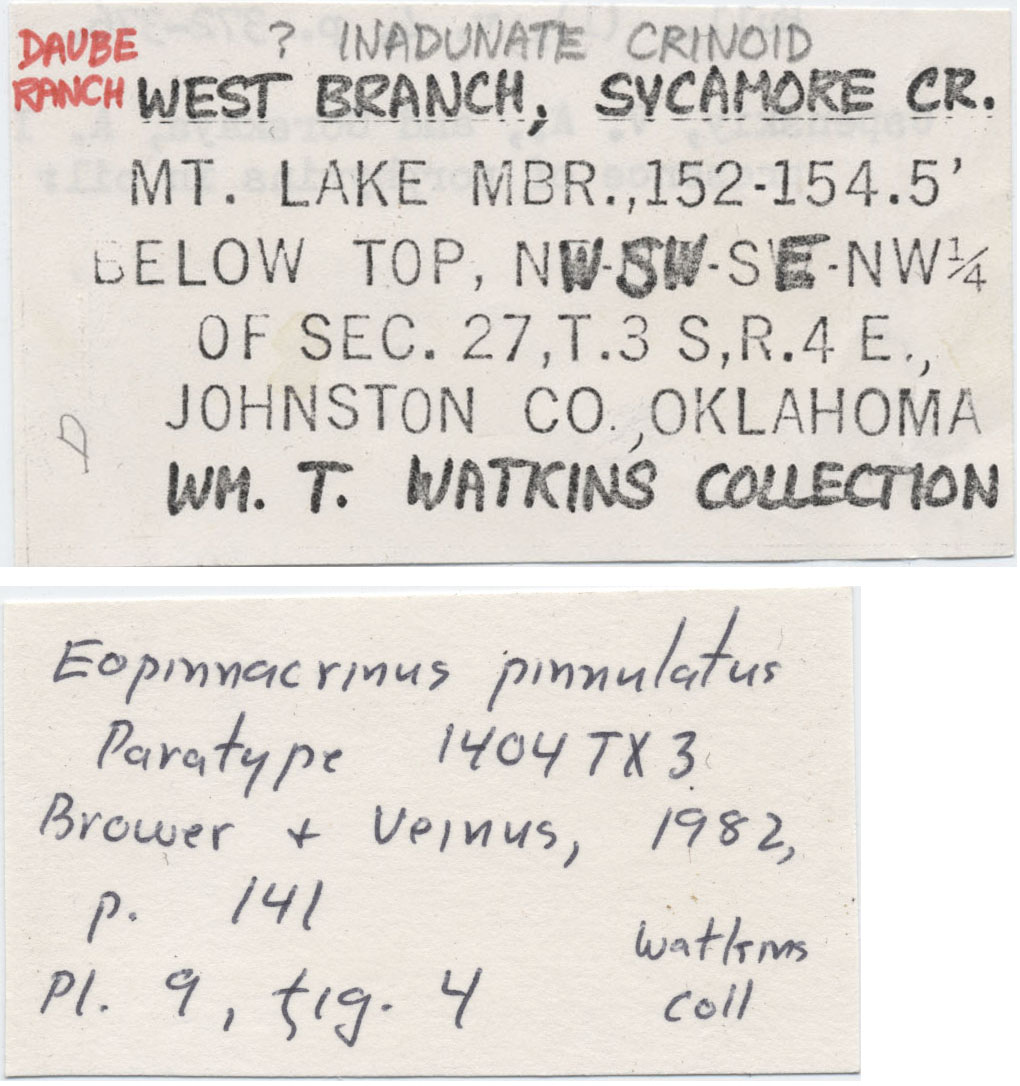 DAUBE RANCH
? INADUNATE CRINOID
WEST BRANCH, SYCAMORE CR.
MT. LAKE MBR.,152-154.5'
BELOW TOP, NW-SW-SE-NW¼
OF SEC. 27,T.3 S,R.4 E.,
JOHNSTON CO.,OKLAHOMA
D
WM. T. WATKINS COLLECTION
Eopinnacrinus pinnulatus
Paratype 1404TX3
Brower + Veinus, 1982,
p. 141
Pl. 9, fig. 4
Watkins
coll